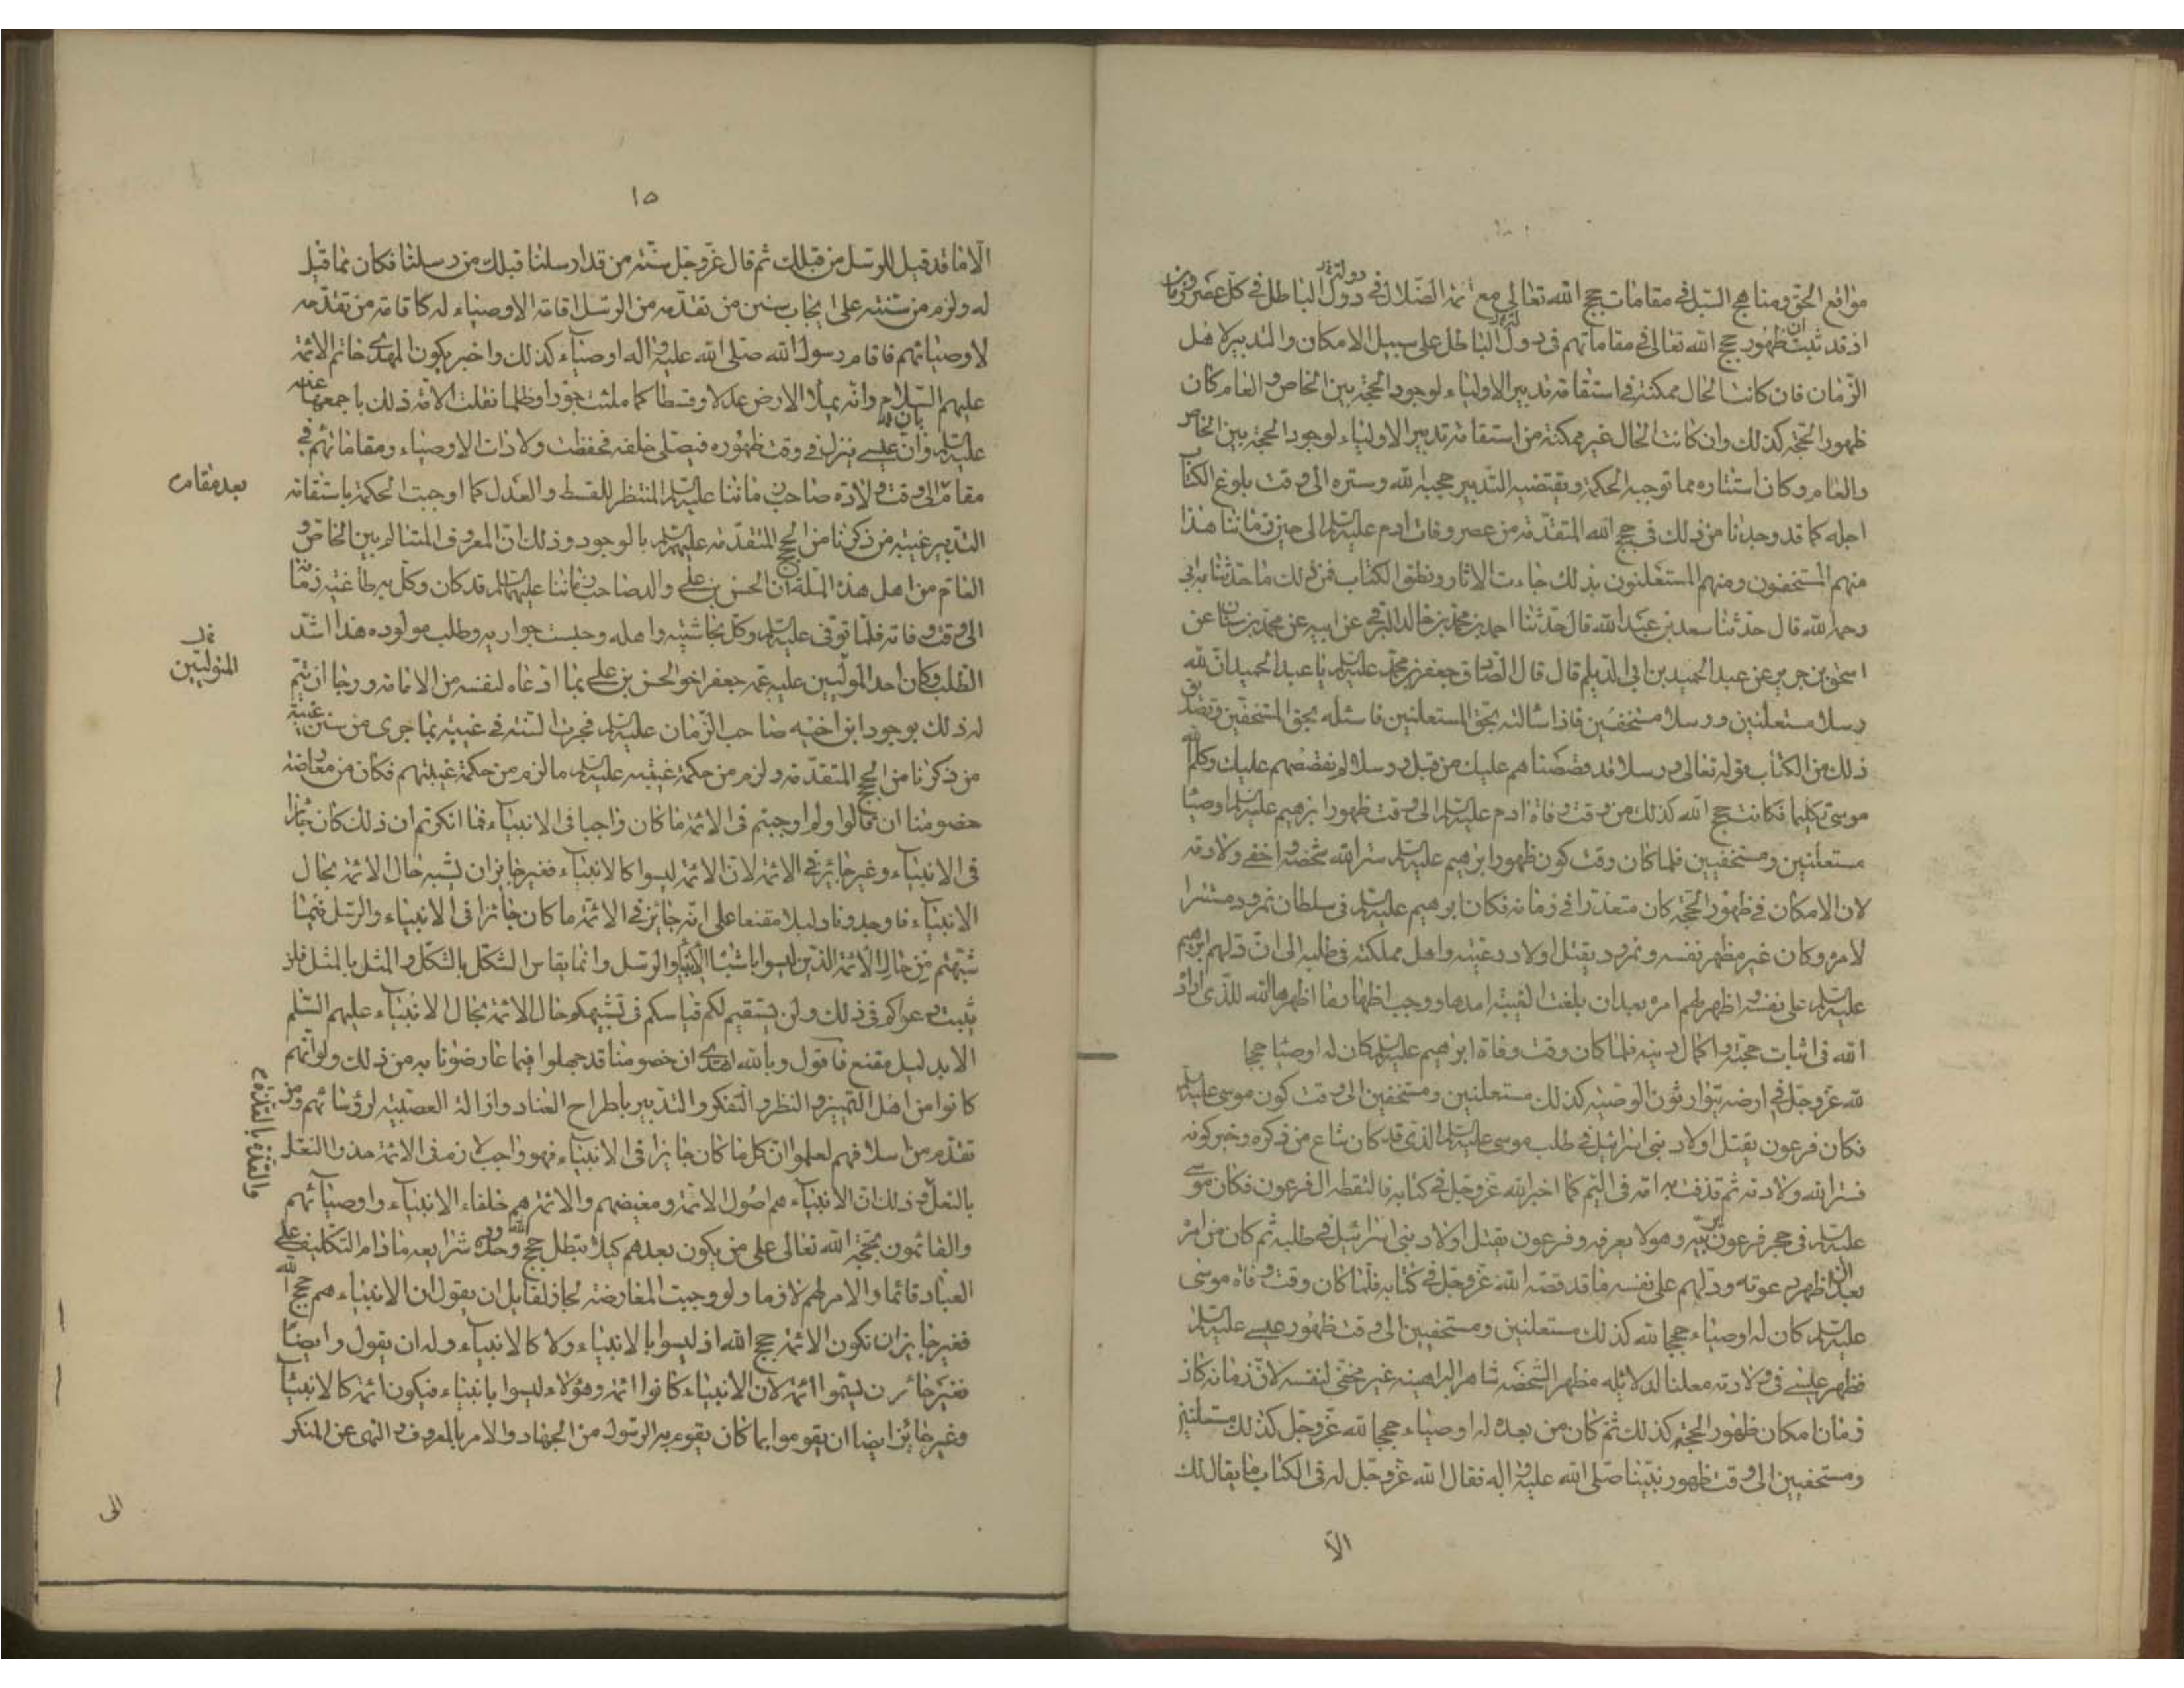 مواقع الحق ومناهج السبل في مقامات حجج الله تعالى مع ائمة الضلال في دول الباطل في كل عصر وزمان
اذ قد ثبت ان ظهور حجج الله تعالى في مقاماتهم في دول الباطل على سبيل الامكان والتدبير لاهل
الزمان فان كانت الحال ممكنة في استقامة تدبير الاولياء لوجود الحجة بين الخاص و العام كان
ظهور الحجة كذلك وان كانت الحال غير ممكنة من استقامة تدبير الاولياء لوجود الحجة بين الخاص
والعام وكان استتاره مما توجبه الحكمة ويقتضيه التدبير حجبه الله وستره الى وقت بلوغ الكتاب
اجله كما قد وجدنا من ذلك في حجج الله المتقدمة من عصر وفات ادم عليه السلام الى حين زماننا هذا
منهم المستخفون ومنهم المستعلنون بذلك جاءت الاثار ونطق الكتاب فمن ذلك ما حدثنا به ابي
رحمه الله قال حدثنا سعد بن عبد الله قال حدثنا احمد بن محمد بن خالد البرقي عن ابيه عن محمد بن سنان عن
اسحق بن جرير عن عبد الحميد بن ابي الديلم قال قال الصادق جعفر بن محمد عليه السلام يا عبد الحميد ان لله
رسلا مستعلنين ورسلا مستخفين فاذا سالته بحق المستعلنين فاسئله بحق المستخفين وتصديق
ذلك من الكتاب قوله تعالى ورسلا قد قصصناهم عليك من قبل ورسلا لم نقصصهم عليك وكلم الله
موسى تكليما فكانت حجج الله كذلك من وقت وفاة ادم عليه السلام الى وقت ظهور ابرهيم عليه السلام اوصياء
مستعلنين ومستخفيين فلما كان وقت كون ظهور ابرهيم عليه السلام ستر الله شخصه و اخفى ولادته
لان الامكان في ظهور الحجة كان متعذرا في زمانه فكان ابرهيم عليه السلام في سلطان نمرود مستترا
لامره وكان غير مظهر نفسه ونمرود يقتل اولاد رعيته واهل مملكته في طلبه الى ان دلهم ابرهيم
عليه السلام على نفسه و اظهر لهم امره بعد ان بلغت الغيبة امدها ووجب اظهار ما اظهره الله للذي اراد
الله في اثبات حجته و اكمال دينه فلما كان وقت وفاة ابرهيم عليه السلام كان له اوصيا حججا
لله عز وجل في ارضه يتوارثون الوصية كذلك مستعلنين ومستخفين الى وقت كون موسى عليه السلام
فكان فرعون يقتل اولاد بني اسرائيل في طلب موسى عليه السلام الذي قد كان شاع من ذكره وخبر كونه
فستر الله ولادته ثم قذفت به امه في اليم كما اخبر الله عز وجل في كتابه فالتقطه ال فرعون فكان موسى
عليه السلام في حجر فرعون يربيه وهو لا يعرفه وفرعون يقتل اولاد بني اسرائيل في طلبه ثم كان من امره
بعد ان اظهر دعوته ودلهم على نفسه ما قد قصه الله عز وجل في كتابه فلما كان وقت وفاة موسى
عليه السلام كان له اوصياء حججا لله كذلك مستعلنين ومستخفيين الى وقت ظهور عيسى عليه السلام
فظهر عيسى في ولادته معلنا لدلائله مظهرا لشخصه شاهرا لبراهينه غير مخفي لنفسه لان زمانه كان
زمان امكان ظهور الحجة كذلك ثم كان من بعده له اوصياء حججا لله عز وجل كذلك مستعلنين
ومستخفيين الى وقت ظهور نبينا صلى الله عليه و اله فقال الله عز وجل له في الكتاب ما يقال لك
الا
١٥
الا ما قد قيل للرسل من قبلك ثم قال عز وجل سنة من قد ارسلنا قبلك من رسلنا فكان مما قيل
له ولزم من سنته على ايجاب سنن من تقدمه من الرسل اقامة الاوصياء له كاقامة من تقدمه
لاوصيائهم فاقام رسول الله صلى الله عليه و اله اوصياء كذلك واخبر بكون المهدي خاتم الائمة
عليهم السلام وانه يملأ الارض عدلا وقسطا كما ملئت جورا وظلما نقلت الامة ذلك باجمعها عنه
عليه السلام وان عيسى ينزل في وقت ظهوره فيصلي خلفه فحفظت ولادات الاوصياء ومقاماتهم في
مقام الى وقت ولادة صاحب زماننا عليه السلام المنتظر للقسط والعدل كما اوجبت الحكمة باستقامة
بعد مقام
التدبير غيبة من ذكرنا من الحجج المتقدمة عليهم السلام بالوجود وذلك ان المعروف المتسالم بين الخاص و
العام من اهل هذه الملة ان الحسن بن علي والد صاحب زماننا عليهما السلام قد كان وكل به طاغية زمانه
الى وقت وفاته فلما توفي عليه السلام وكل بحاشيته واهله وحبست جواريه وطلب مولوده هذا اشد
الطلب وكان احد المولين عليه عمه جعفر اخو الحسن بن علي بما ادعاه لنفسه من الامامة ورجا ان يتم
المتولين
له ذلك بوجود ابن اخيه صاحب الزمان عليه السلام فجرت السنة في غيبته بما جرى من سنن غيبة
من ذكرنا من الحجج المتقدمة ولزم من حكمة غيبته عليه السلام ما لزم من حكمة غيبتهم فكان من معارضة
خصومنا ان قالوا ولم اوجبتم في الائمة ما كان واجبا في الانبياء فما انكرتم ان ذلك كان جائزا
في الانبياء وغير جائز في الائمة لان الائمة ليسوا كالانبياء فغير جايز ان يشبه حال الائمة بحال
الانبياء فاوجدونا دليلا مقنعا على انه جائز في الائمة ما كان جائزا في الانبياء والرسل فيما
شبهتم من حال الائمة الذين ليسوا باشباه الانبياء والرسل وانما يقاس الشكل بالشكل و المثل بالمثل فلن
تثبت دعواكم في ذلك ولن يستقيم لكم قياسكم في تشبيهكم حال الائمة بحال الانبياء عليهم السلم
الا بدليل مقنع فاقول وبالله اهتدي ان خصومنا قد جهلوا فيما عارضونا به من ذلك ولو انهم
كانوا من اهل التميز و النظر و التفكر والتدبير باطراح العناد وازالة العصبية لرؤسائهم ومن
تقدم من اسلافهم لعلموا ان كل ما كان جايزا في الانبياء فهو واجب لازم في الائمة حذو النعل
بالنعل و ذلك ان الانبياء هم اصول الائمة ومغيضهم والائمة هم خلفاء الانبياء واوصيائهم
والقذة بالقذة
والقائمون بحجة الله تعالى على من يكون بعدهم كيلا تبطل حجج الله وحدوده وشرايعه مادام التكليف على
العباد قائما والامر لهم لازما ولو وجبت المعارضة لجاز لقايل ان يقول ان الانبياء هم حجج الله
فغير جايز ان تكون الائمة حجج الله اذ ليسوا بالانبياء ولا كالانبياء وله ان يقول وايضا
فغير جائز ان يسموا ائمة لان الانبياء كانوا ائمة وهؤلاء ليسوا بانبياء فيكون ائمة كالانبياء
وغير جائز ايضا ان يقوموا بما كان يقوم به الرسول من الجهاد والامر بالمعروف و النهى عن المنكر
الى